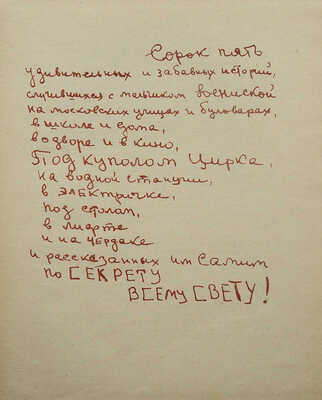 Сорок пять
удивительных и забавных историй,
случившихся с мальчиком Дениской
на московских улицах и бульварах,
в школе и дома,
во дворе и в кино,
ПОД КУПОЛОМ ЦИРКА,
на водной станции,
в ЭЛЕКТРИЧКЕ,
под столом,
в лифте
и на чердаке
и рассказанных им Самим
по СЕКРЕТУ
ВСЕМУ СВЕТУ!